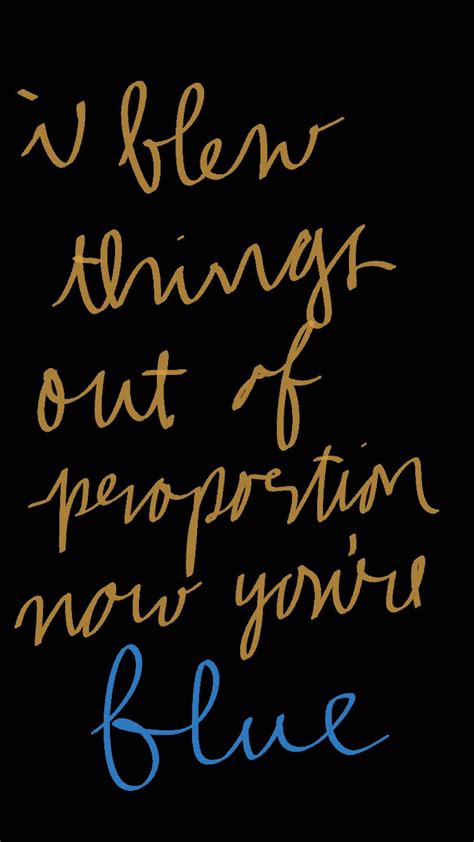 i blew
things
out of
proportion
now you're
blue